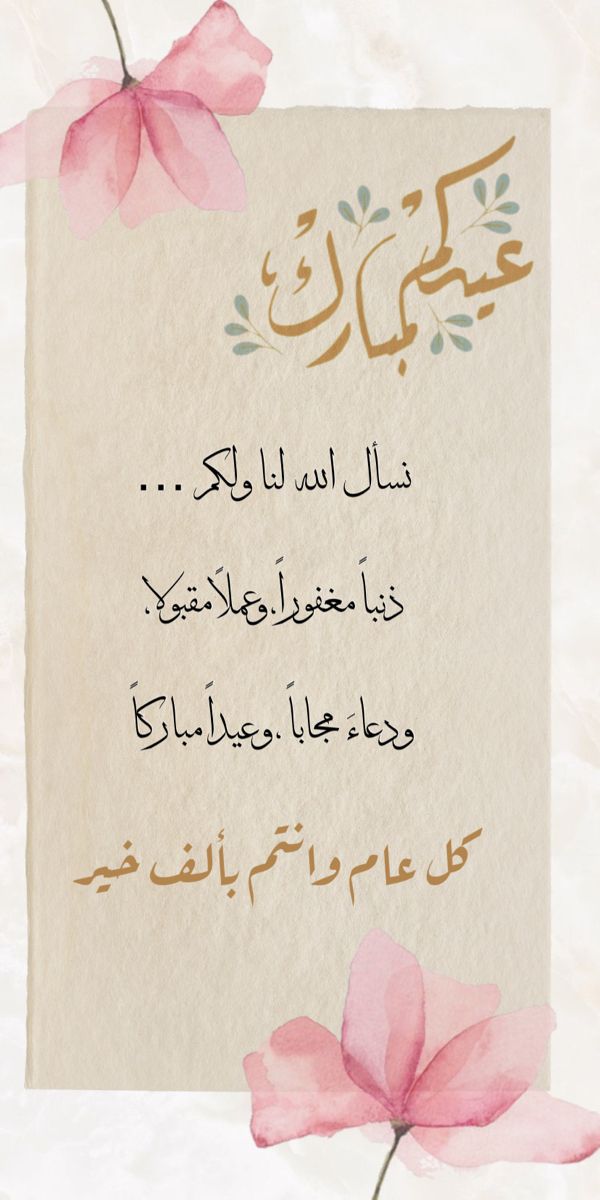 عيدكم مبارك
نسأل الله لنا ولكم ...
ذنباً مغفوراً، وعملاً مقبولا،
ودعاءَ مجاباً ، وعيداً مباركاً
كل عام وانتم بألف خير